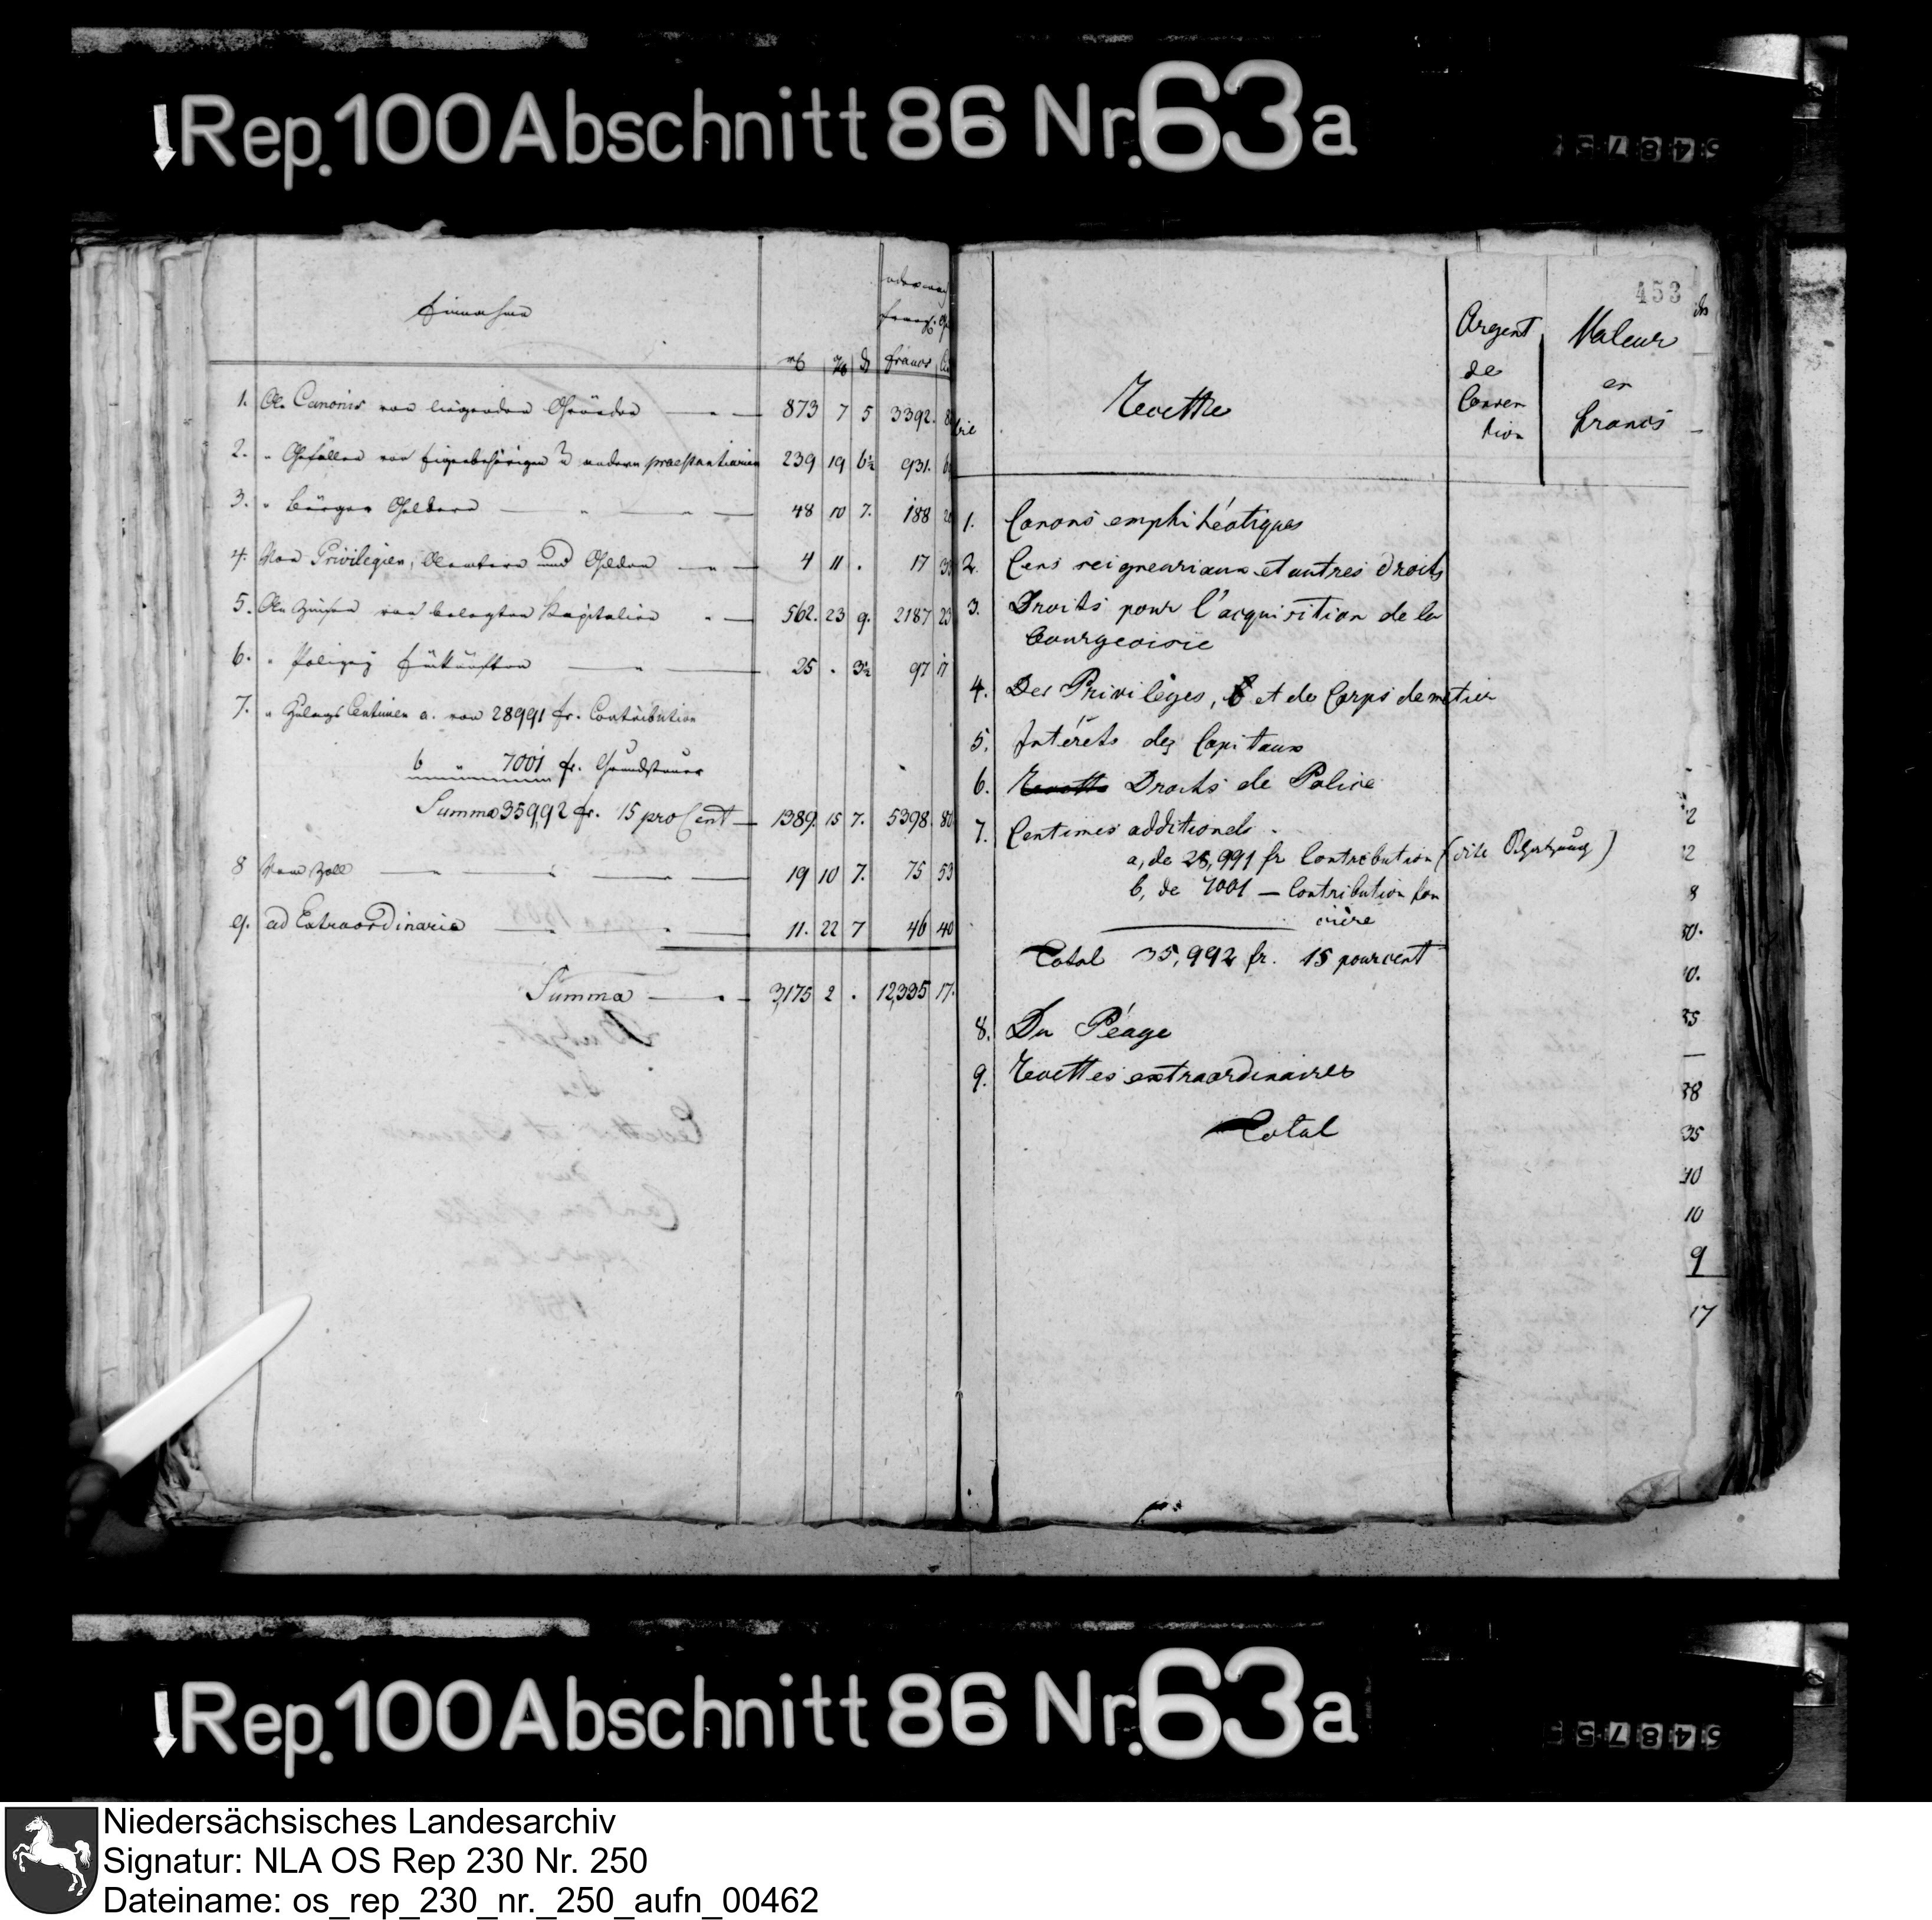 Rep. 100 Abschnitt 86 Nr. 63a
Einnahme
francs
1. An Canonis von liegenden Gründen 873 7 5 3392.
2. " Gefällen von Eigenbehörigen und andern praestantiarien 239 19 6½ 931.
3. " Bürger Geldern 48 10 7. 188
4. Von Privilegien, Aemtern und Gilden 4 11 . 17
5. An Zinsen von belegten Kapitalien 562. 23 9. 2187 23
6. " Polizey Einkünften 25 . 3½ 97 17
7. " Zulags Centimen a. von 28991 fr. Contribution
b " 7001 fr. Grundsteuer
Summa 35992 fr. 15 pro Cent 1389. 15 7. 5398. 80
8 Vom Zoll 19 10 7. 75 53
9. ad Extraordinaria 11. 22 7 46 40
Summa 3,175 2 . 12,335 17.
453
Recette
Argent
de
Conven
tion
Valeur
en
francs
1. Canons emphitéotiques
2. Cens seigneuriaux et autres droits
3. Droits pour l'acquisition de la
bourgeoisie
4. Des Privilèges, et de Corps de metier
5. Intérêts des Capitaux
6. Recette Droits de Police
7. Centimes additionels.
a, de 28,991 fr Contribution (
)
b, de 7001 — Contribution fon
cière
Total 35,992 fr. 15 pourcent
8. Du Péage
9. Recettes extraordinaires
Total
2
12
8
10.
35
—
38
35
10
10
9
17
Rep. 100 Abschnitt 86 Nr. 63a
Niedersächsisches Landesarchiv
Signatur: NLA OS Rep 230 Nr. 250
Dateiname: os_rep_230_nr._250_aufn_00462